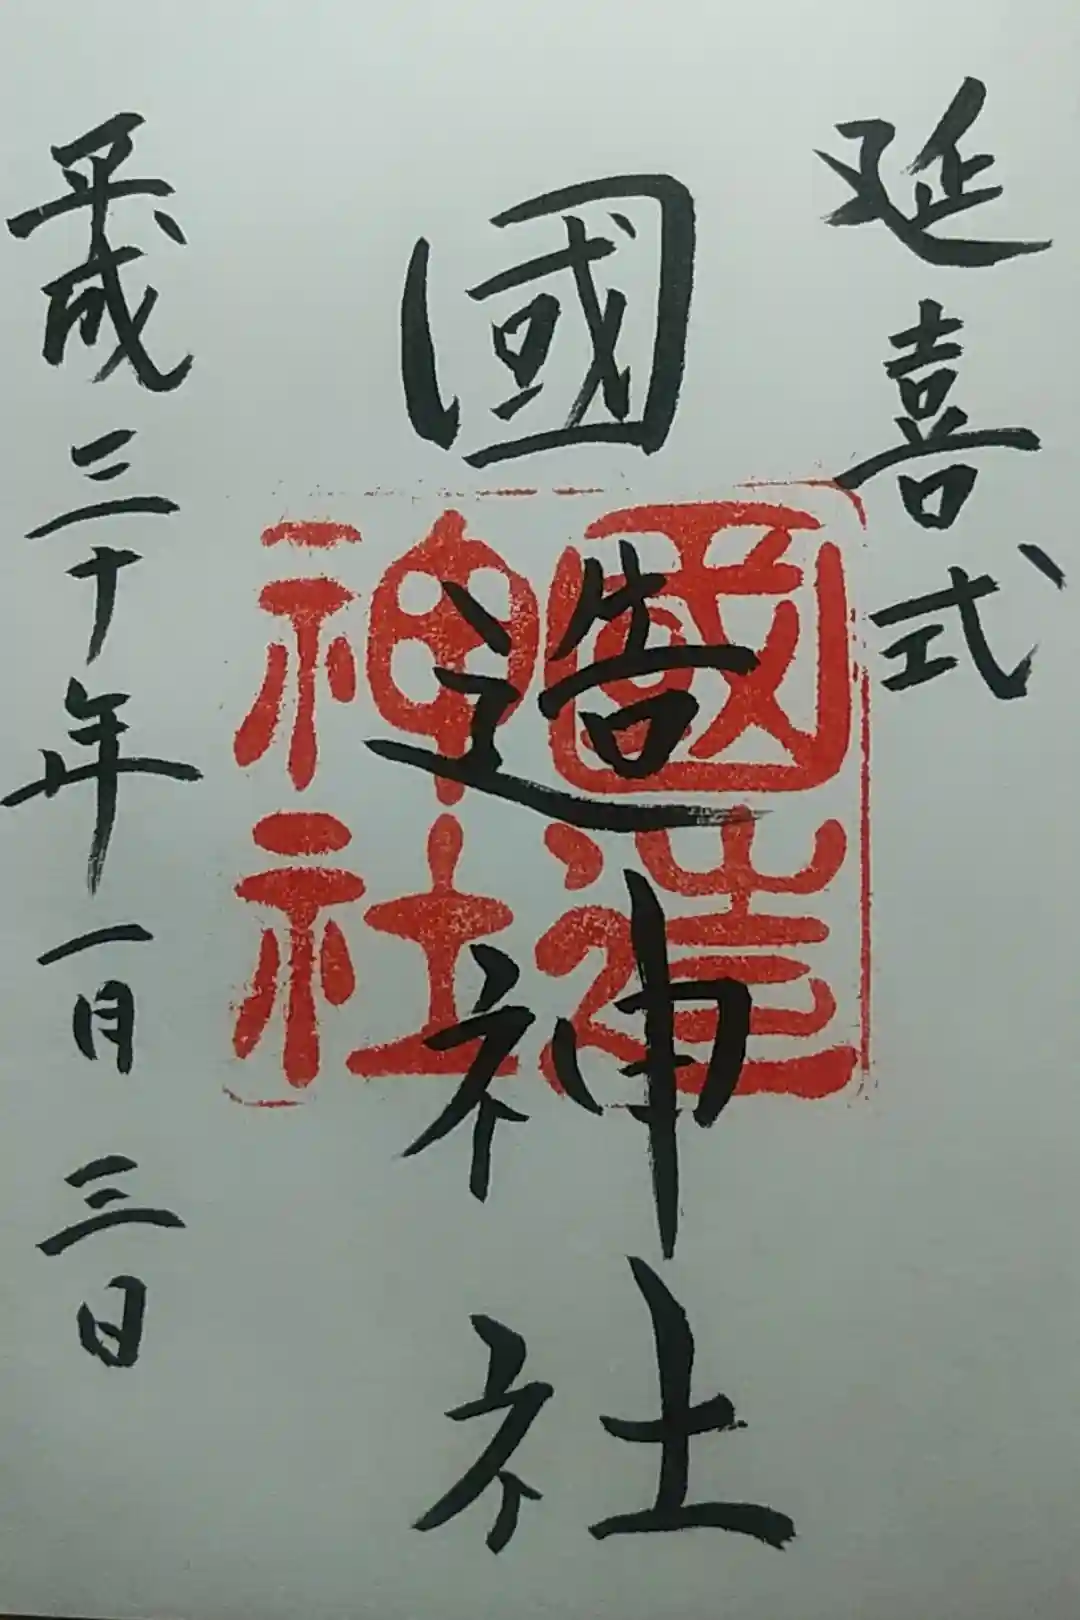 延喜式
國造神社
國造
神社
平成三十年一月三日